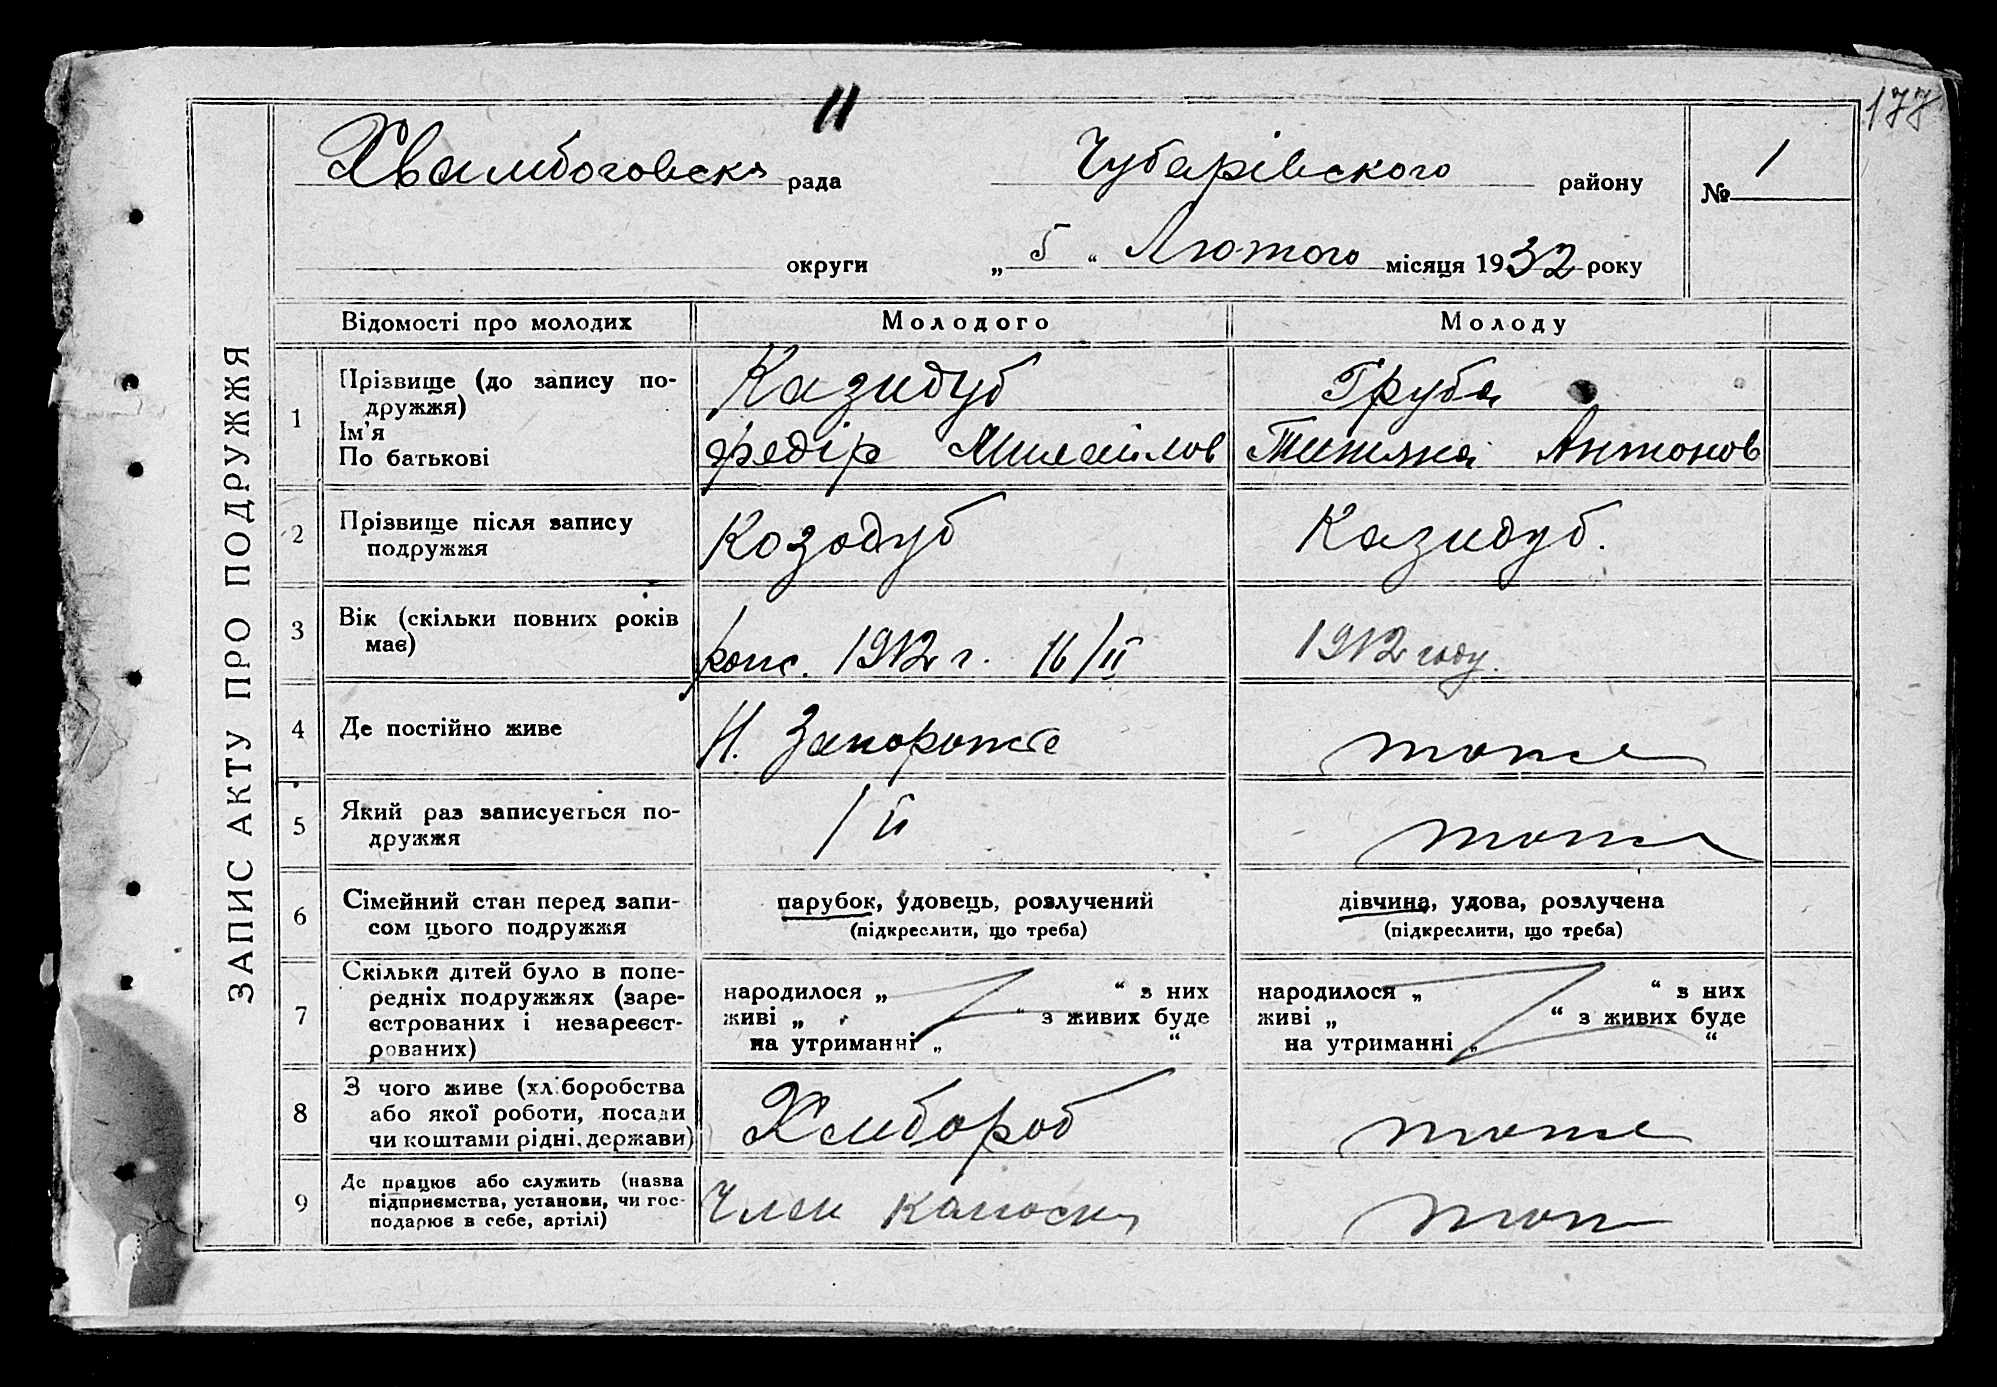 11
177
Хвалибоговска рада Чубарівского району № 1
округи „ 5 “ Лютого місяця 1932 року
ЗАПИС АКТУ ПРО ПОДРУЖЖЯ
Відомості про молодих Молодого Молоду
1 Прізвище (до запису по- Казидуб Груба
дружжя)
Ім'я Федір Михайлов Тетяна Антонов
По батькові
2 Прізвище після запису Козодуб Казидуб.
подружжя
3 Вік (скільки повних років 1912 г. 16/II 1912 году.
має)
4 Де постійно живе Н. Запорожжє тоже
5 Який раз записується по- 1й тоже
дружжя
6 Сімейний стан перед запи- парубок, удовець, розлучений дівчина, удова, розлучена
сом цього подружжя (підкреслити, що треба) (підкреслити, що треба)
7 Скільки дітей було в попе-
редніх подружжях (заре- народилося „ “ з них народилося „ “ з них
єстрованих і незареєст- живі „ “ з живих буде живі „ “ з живих буде
рованих) на утриманні „ “ на утриманні „ “
8 З чого живе (хліборобства
або якої роботи, посади Хлибороб тоже
чи коштами рідні, держави)
9 Де працює або служить (назва
підприємства, установи, чи гос- Член тоже
подарює в себе, артілі)